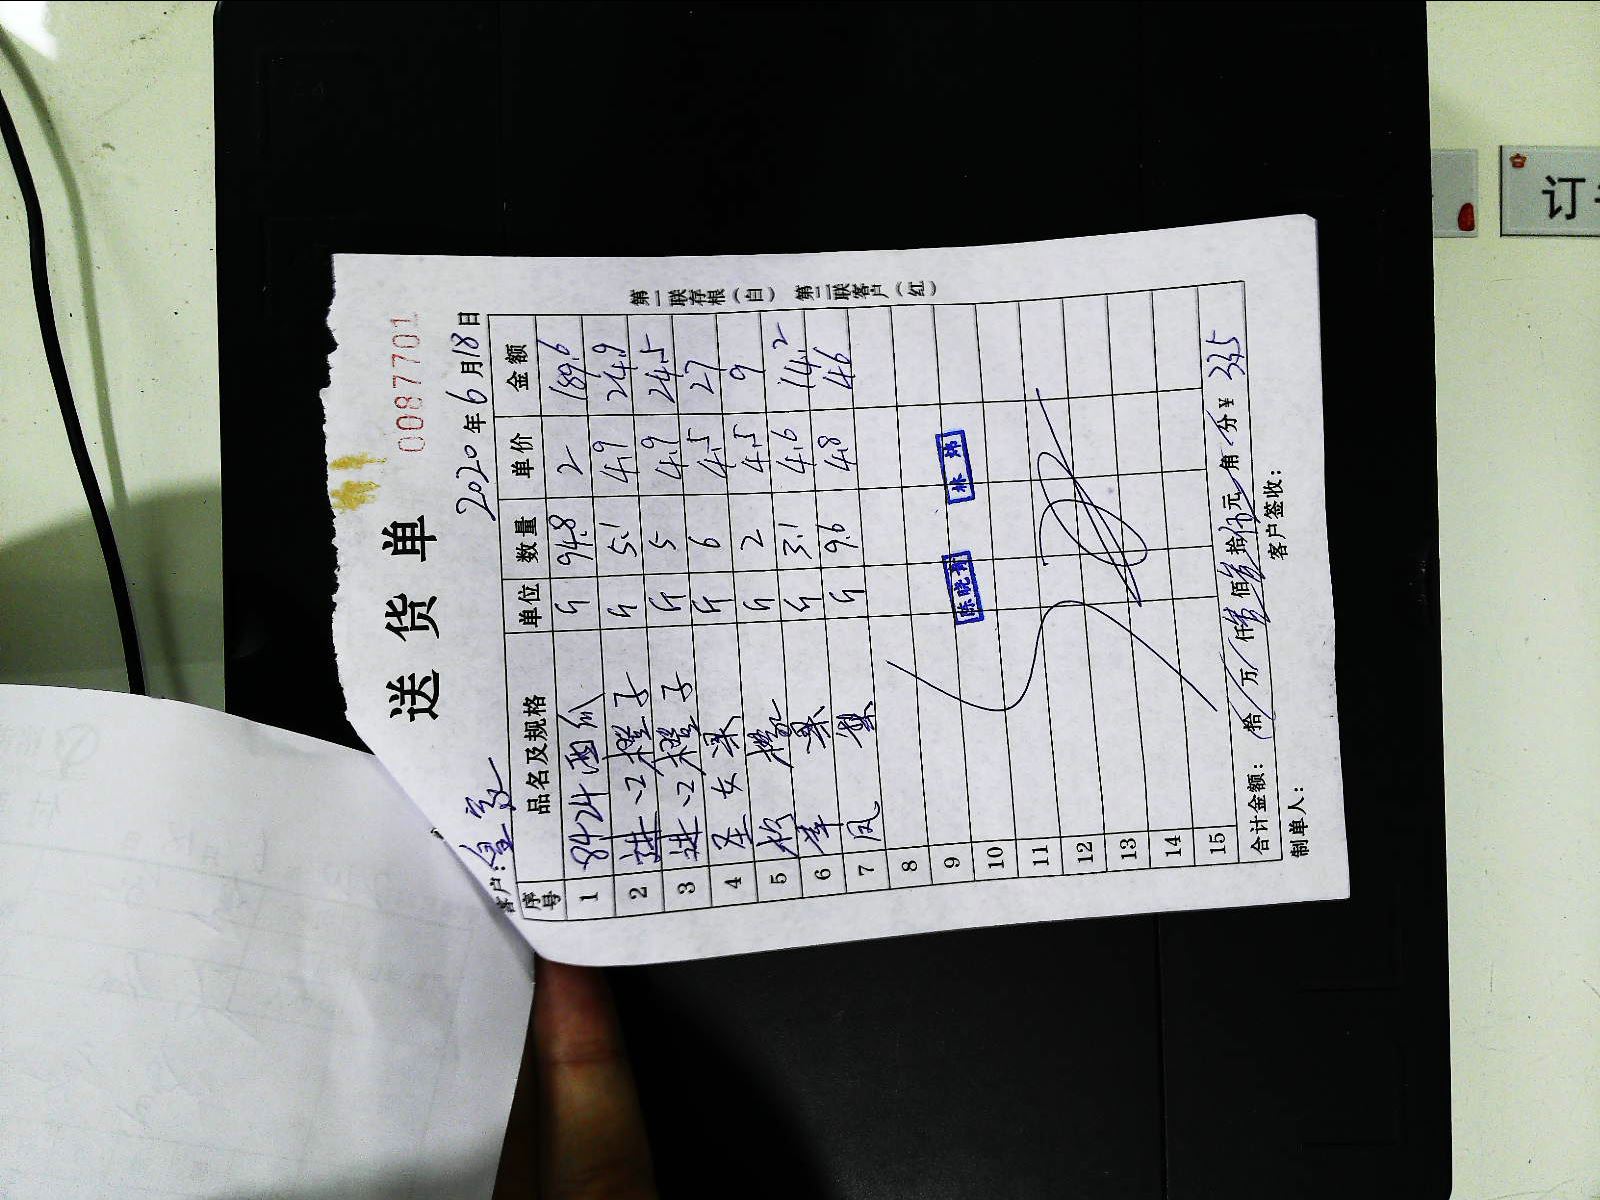 送货单
0087701
2020年6月18日
客户:
序号 品名及规格 单位 数量 单价 金额
1 8424西瓜 斤 94.8 2 189.6
2 进口橙子 斤 5.1 4.9 24.9
3 进口橙子 斤 5 4.9 24.5
4 圣女果 斤 6 4.5 27
5 斤 2 4.5 9
6 苹果 斤 3.1 4.6 14.2
7 凤梨 斤 9.6 4.8 46
8
9
10
11
12
13
14
15
陈晓 林
合计金额: 拾 万 仟 佰 拾 元 角 分 ¥ 335
制单人: 客户签收:
第一联存根(白) 第二联客户(红)
订